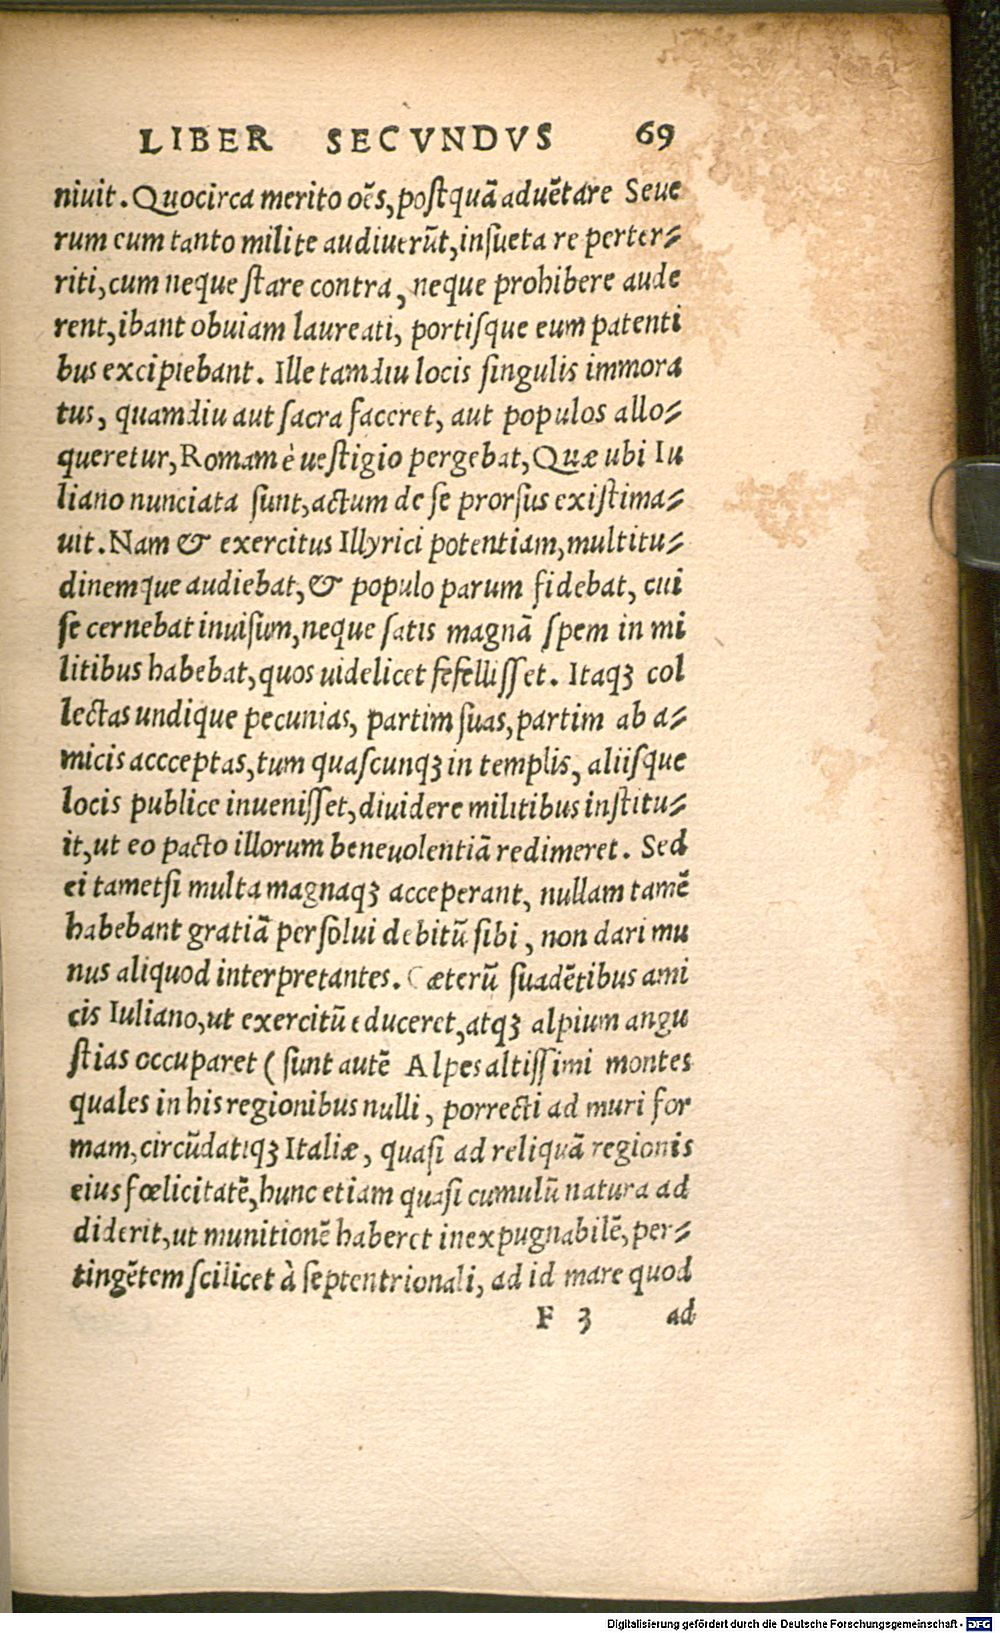 LIBER SECVNDVS 69
niuit. Quocirca merito oẽs, poſtquã aduẽtare Seue
rum cum tanto milite audiuerũt, inſueta re perter⸗
riti, cum neque ſtare contra, neque prohibere aude
rent, ibant obuiam laureati, portiſque eum patenti
bus excipiebant. Ille tamdiu locis ſingulis immora
tus, quamdiu aut ſacra faceret, aut populos allo⸗
queretur, Romam è ueſtigio pergebat, Quæ ubi Iu
liano nunciata ſunt, actum de ſe prorſus exiſtima⸗
uit. Nam & exercitus Illyrici potentiam, multitu⸗
dinemque audiebat, & populo parum fidebat, cui
ſe cernebat inuiſum, neque ſatis magnã ſpem in mi
litibus habebat, quos uidelicet fefelliſſet. Itaqꝫ col
lectas undique pecunias, partim ſuas, partim ab a⸗
micis accceptas, tum quaſcunqꝫ in templis, aliiſque
locis publice inueniſſet, diuidere militibus inſtitu⸗
it, ut eo pacto illorum beneuolentiã redimeret. Sed
ei tametſi multa magnaqꝫ acceperant, nullam tamẽ
habebant gratiã perſolui debitũ ſibi, non dari mu
nus aliquod interpretantes. Cæterũ ſuadẽtibus ami
cis Iuliano, ut exercitũ educeret, atqꝫ alpium angu
ſtias occuparet ( ſunt autẽ Alpes altiſſimi montes
quales in his regionibus nulli, porrecti ad muri for
mam, circũdatiqꝫ Italiæ, quaſi ad reliquã regionis
eius fœlicitatẽ, hunc etiam quaſi cumulũ natura ad
diderit, ut munitionẽ haberet inexpugnabilẽ, per⸗
tingẽtem ſcilicet à ſeptentrionali, ad id mare quod
F 3 ad
Digitalisierung gefördert durch die Deutsche Forschungsgemeinschaft - DFG